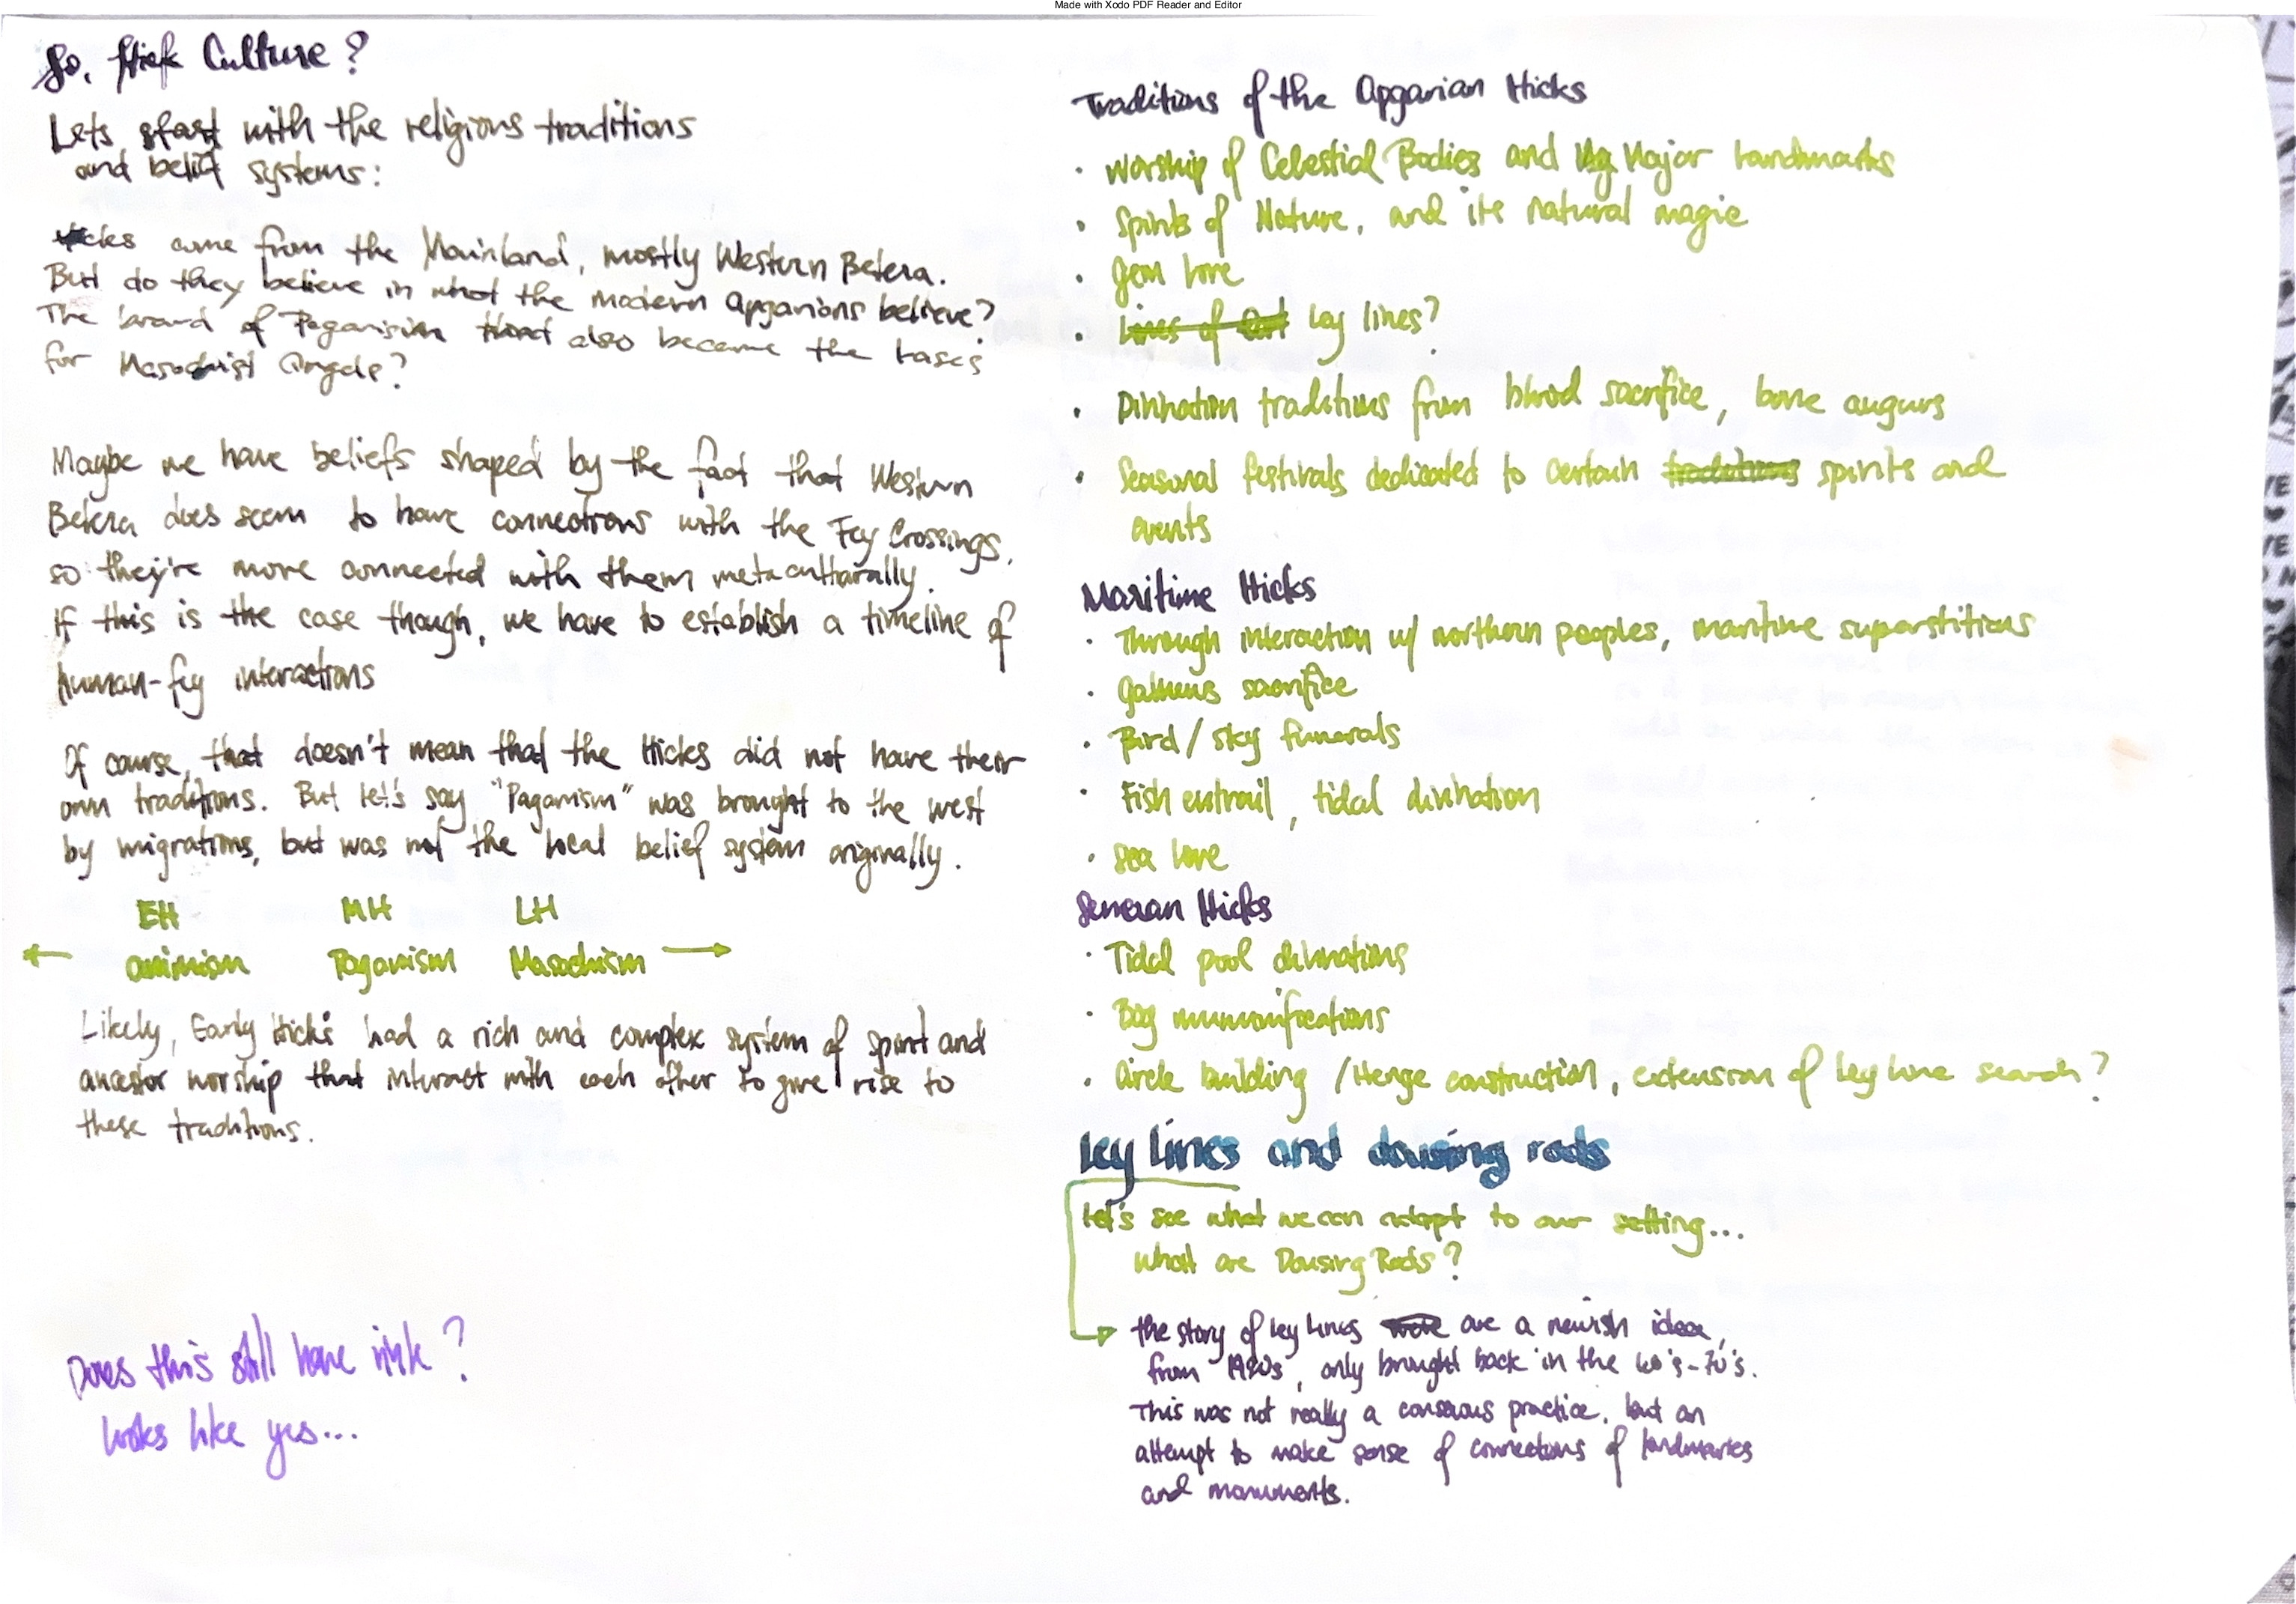 Made with Xodo PDF Reader and Editor
So, Hick Culture?
Lets start with the religious traditions
and belief systems:
Hicks came from the Mainland, mostly Western Betera.
But do they believe in what the modern Apgarians believe?
The brand of Paganism that also became the basis
for Masochist Angele?
Maybe we have beliefs shaped by the fact that Western
Betera does seem to have connections with the Fey Crossings,
so they're more connected with them metaculturally.
If this is the case though, we have to establish a timeline of
human-fey interactions
Of course, that doesn't mean that the Hicks did not have their
own traditions. But let's say "Paganism" was brought to the west
by migrations, but was not the local belief system originally.
EH MH LH
animism Paganism Masochism
Likely, Early Hicks had a rich and complex system of spirit and
ancestor worship that interact with each other to give rise to
these traditions.
Does this still have ink?
Looks like yes...
Traditions of the Apgarian Hicks
· Worship of Celestial Bodies and Major Landmarks
· Spirits of Nature, and its natural magic
· Gem lore
· Lines of Ley lines?
· Divination traditions from blood sacrifice, bone augurs
· Seasonal festivals dedicated to certain traditions spirits and
events
Maritime Hicks
· Through interaction w/ northern peoples, maritime superstitions
· sacrifice
· Bird/sky funerals
· Fish entrail, tidal divination
· Sea lore
Hicks
· Tidal pool divinations
· Bog mummifications
· Circle building/Henge construction, extension of ley line search?
Ley Lines and dousing rods
Let's see what we can adapt to our setting...
What are Dousing Rods?
the story of ley lines were are a newish idea,
from 1920s, only brought back in the 60's-70's.
This was not really a conscious practice, but an
attempt to make sense of connections of landmarks
and monuments.